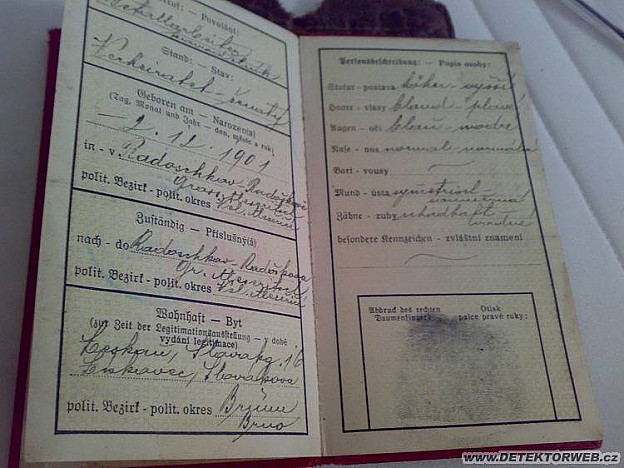 Beruf: - Povolání:
Stand: - Stav:
Verheiratet - ženatý
Geboren am - Narozen(a)
(Tag, Monat und Jahr - den, měsíc a rok)
1901
in - v Radoschkov - Radoškov
polit. Bezirk - polit. okres
Zuständig - Příslušný(á)
nach - do Radoschkov - Radoškova
polit. Bezirk - polit. okres
Wohnhaft - Byt
(zur Zeit der Legitimationsausstellung - v době
vydání legitimace)
Leskau, Slovakg. 16
Leskovec, Slovákova
polit. Bezirk - polit. okres Brünn
Brno
Personsbeschreibung: - Popis osoby:
Statur - postava höher - vyšší
Haare - vlasy blond - plavé
Augen - oči blau - modré
Nase - nos normal - normální
Bart - vousy
Mund - ústa
Zähne - zuby schadhaft
besondere Kennzeichen - zvláštní znamení
Abdruck des rechten Daumenfingers: Otisk palce pravé ruky:
WWW.DETEKTORWEB.CZ